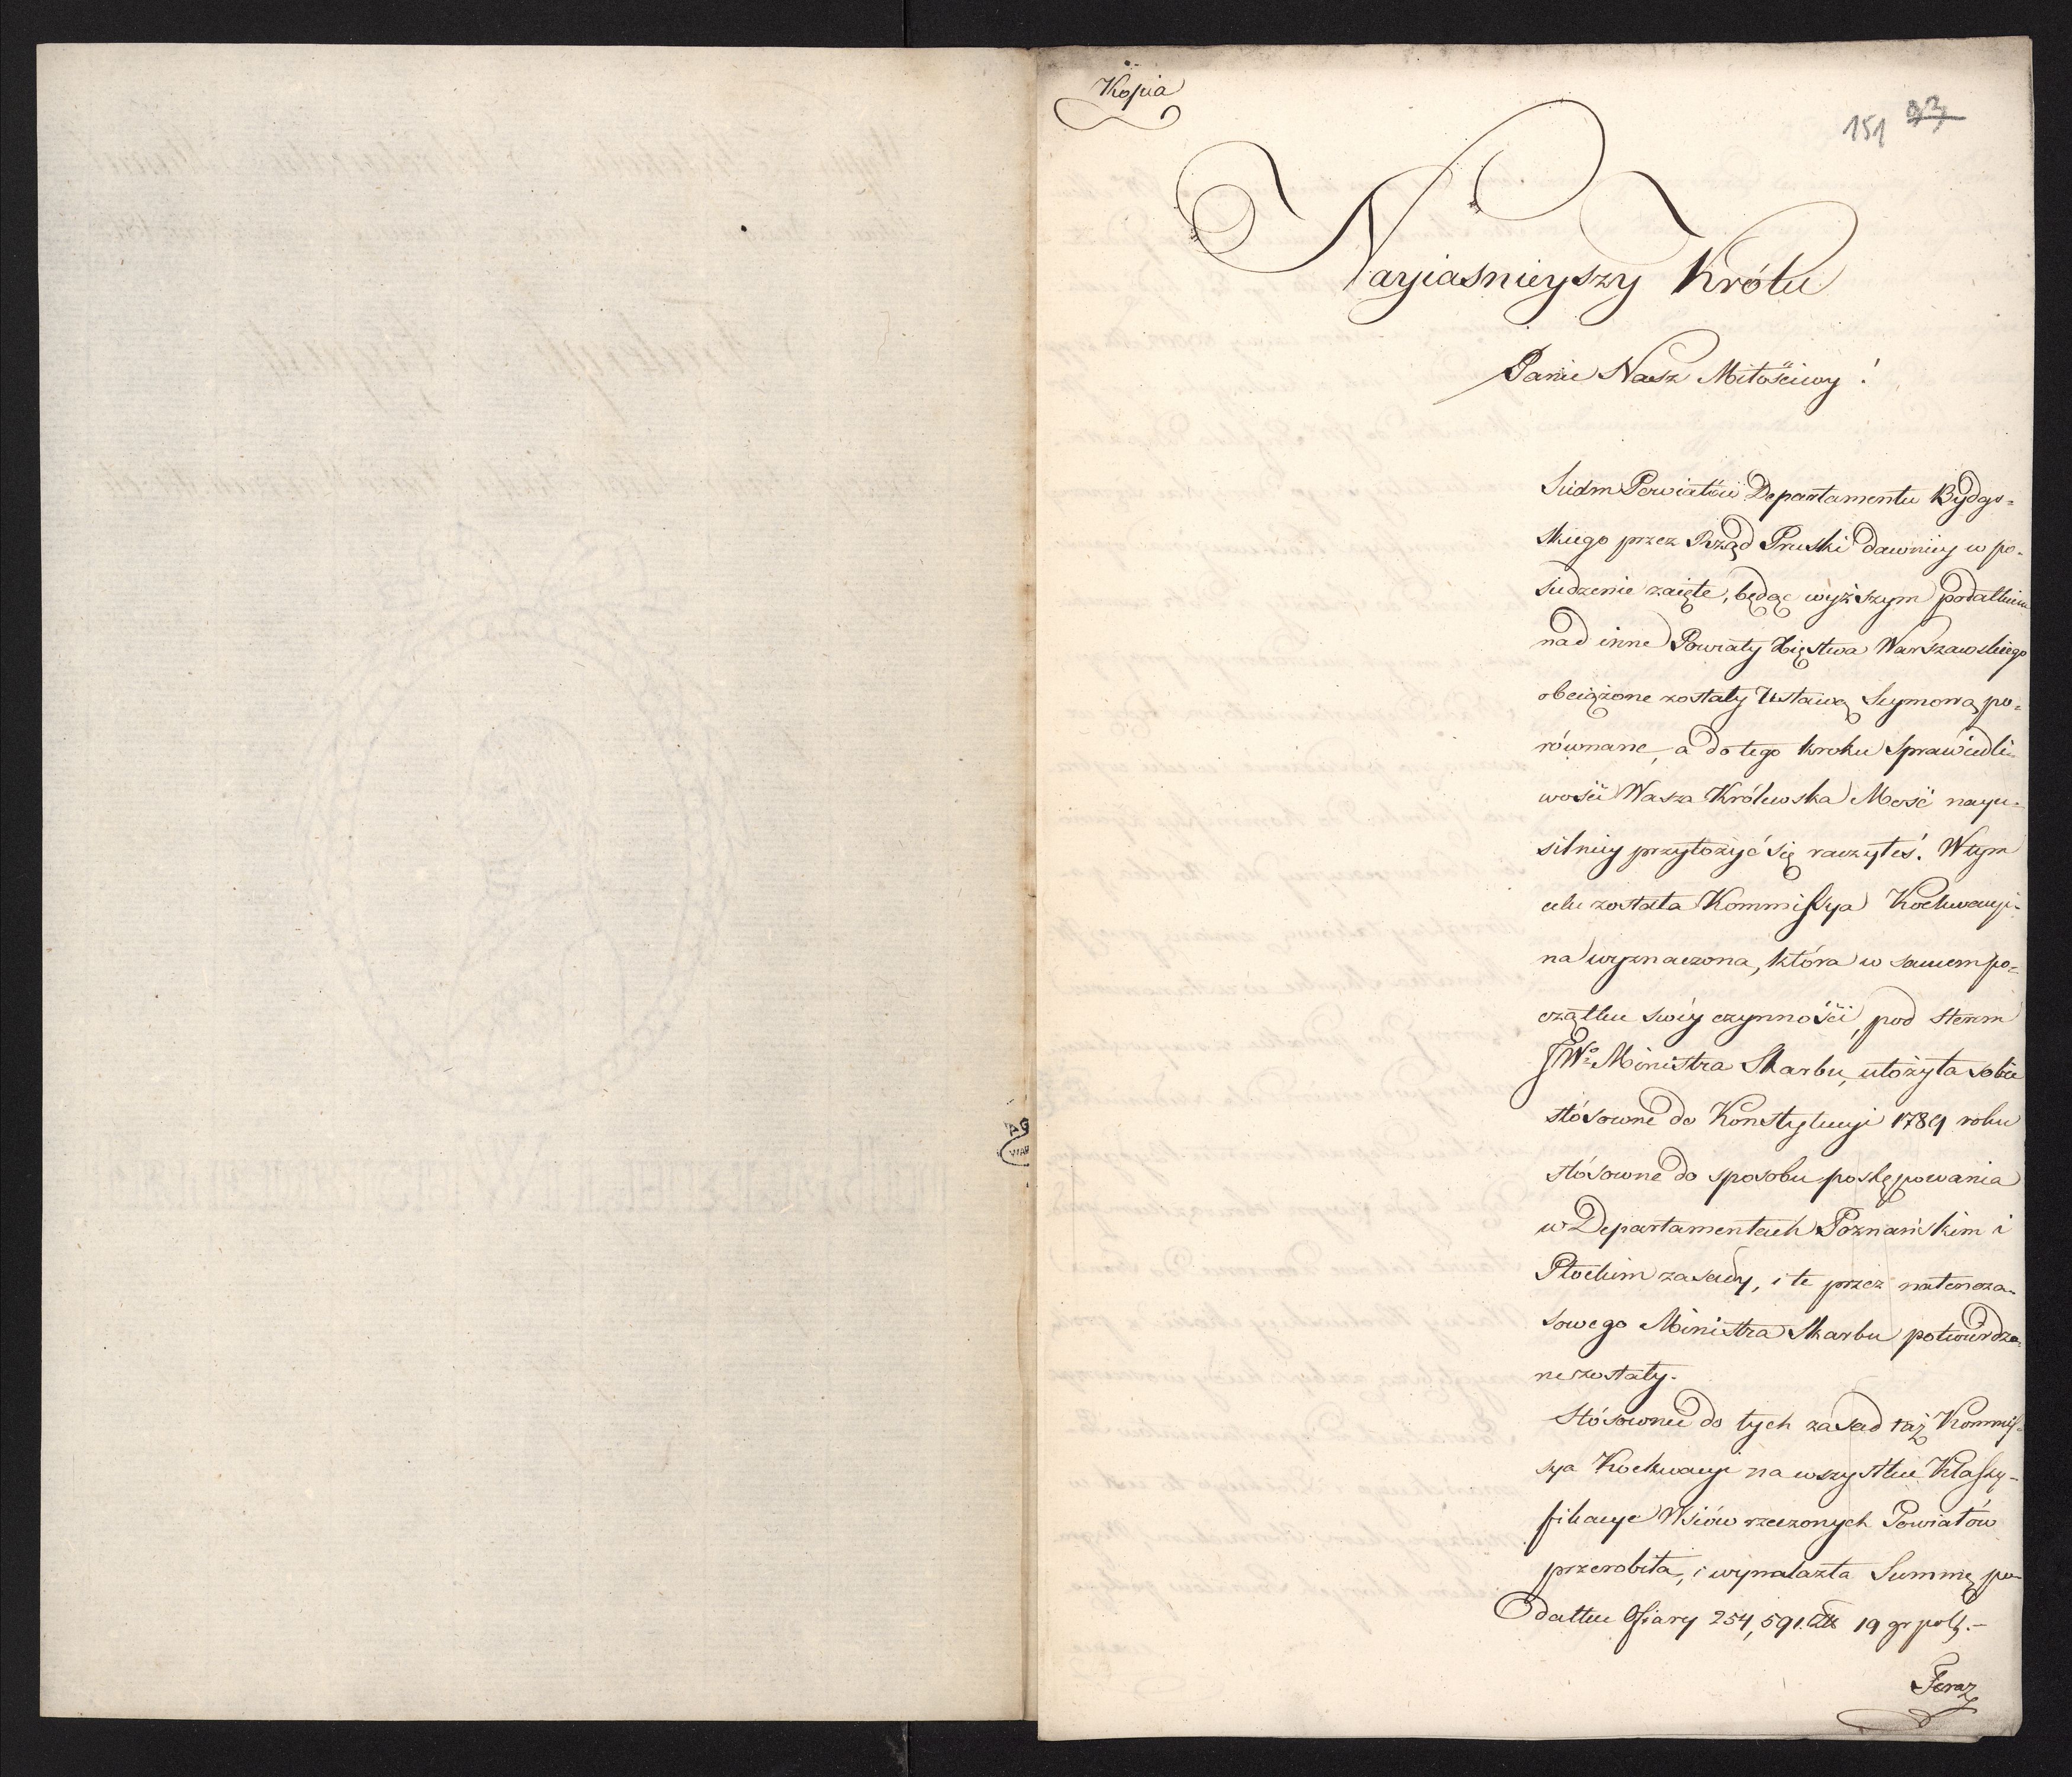 Kopia
151 93
Nayiasnieyszy Królu
Panie Nasz Miłościwy!
Siedm Powiatów Departamentu Bydgo=
skiego przez Rząd Pruski dawniey w po=
siedzenie zaięte, będąc wyższym podatkiem
nad inne Powiaty Xięstwa Warszawskiego
obciążone zostały Ustawą Seymową po=
równane, a do tego kroku sprawiedli=
wości Wasza Królewska Mość nayu=
silniey przyłożyć się raczyłeś. W tym
celu została Kommissya Koekwacyi=
na wyznaczona, która w samem po=
czątku swéy czynności, pod sterem
JWo Ministra Skarbu, ułożyła sobie
stósowne do Konstytucyi 1789 roku
stósowne do sposobu postępowania
w Departamentach Poznańskim i
Płockim zasady, i te przez natencza=
sowego Ministra Skarbu potwierdzo=
ne zostały.
Stósownie do tych zasad taż Kommis=
sya Koekwacyi na wszystkie Klassy=
fikacye Wsiów rzeczonych Powiatów
przerobiła, i wynalazła Summę po=
datku Ofiary 254,591. Złł 19 gr pols.-
Teraz